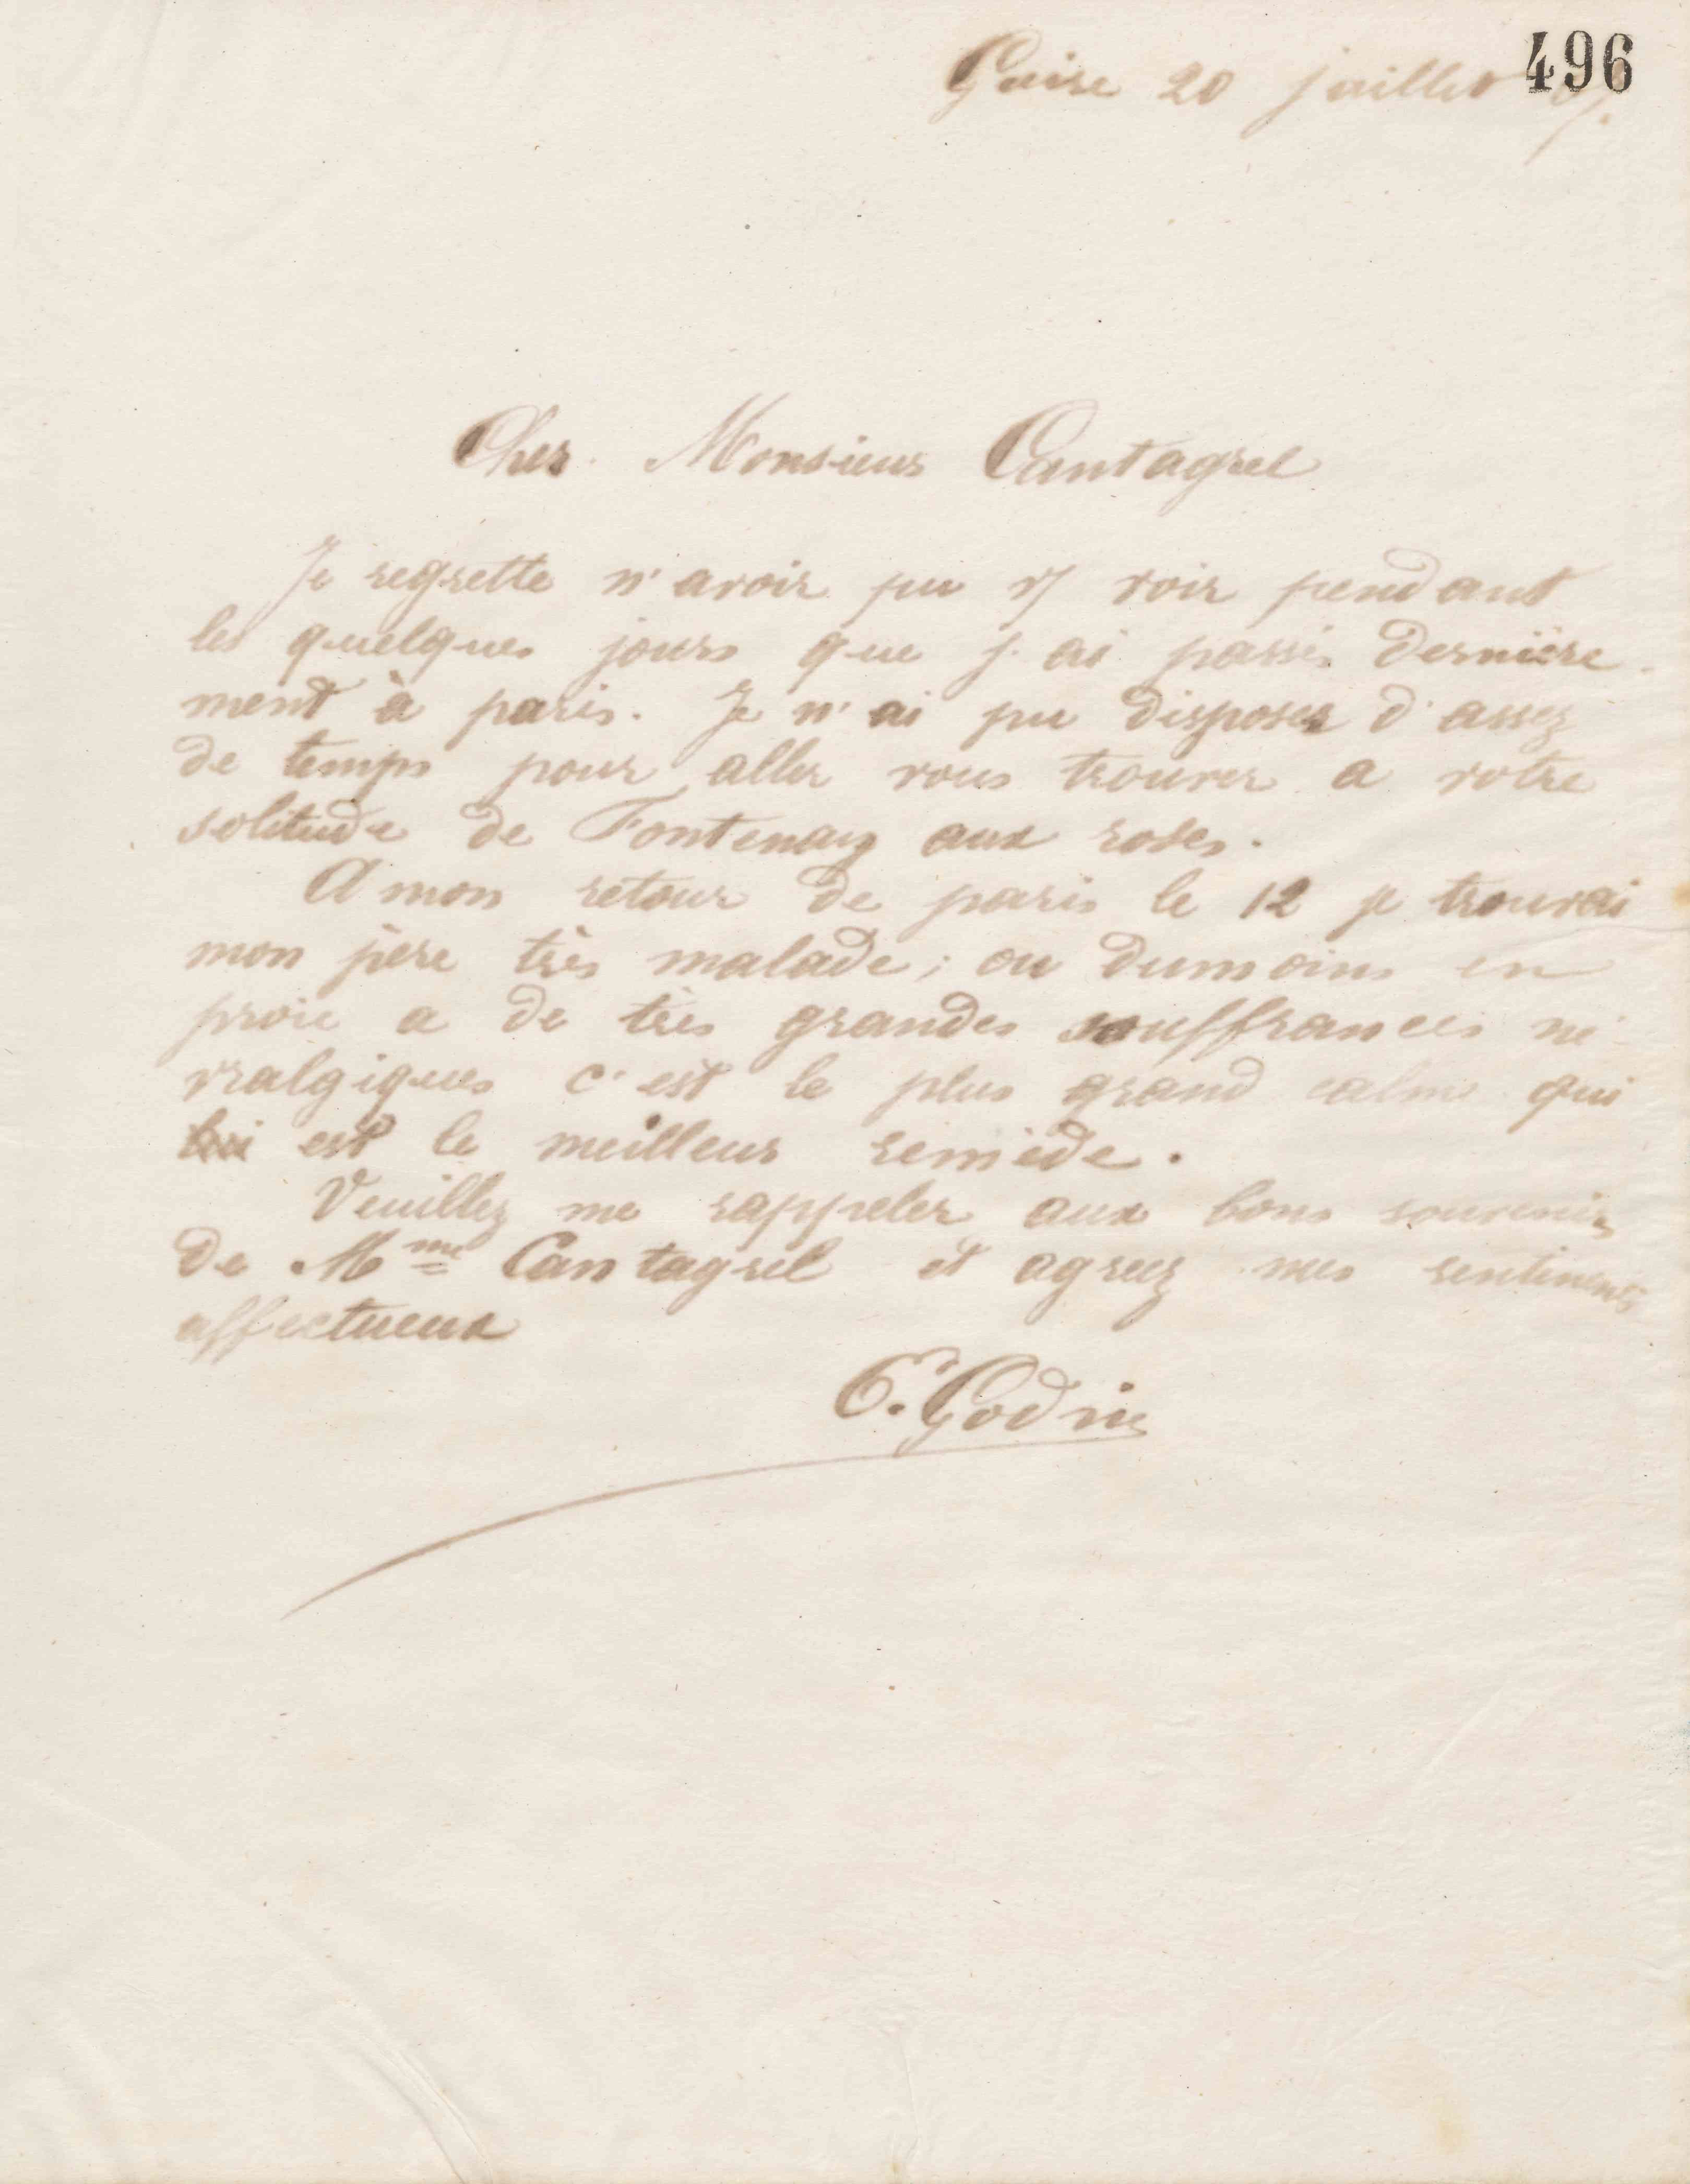 496
Guise 20 juillet
Cher Monsieur Cantagrel
Je regrette n'avoir pu vs voir pendant
les quelques jours que j'ai passés dernière
ment à paris. Je n'ai pu disposer d'assez
de temps pour aller vous trouver a votre
solitude de Fontenay aux roses.
A mon retour de paris le 12 je trouvai
mon père très malade; ou dumoins en
proie a de très grandes souffrances né-
vralgiques c'est le plus grand calme qui
lui est le meilleur remède.
Veuillez me rappeler aux bons souvenirs
de Mme Cantagrel et agréez mes sentiments
affectueux
E. Godin